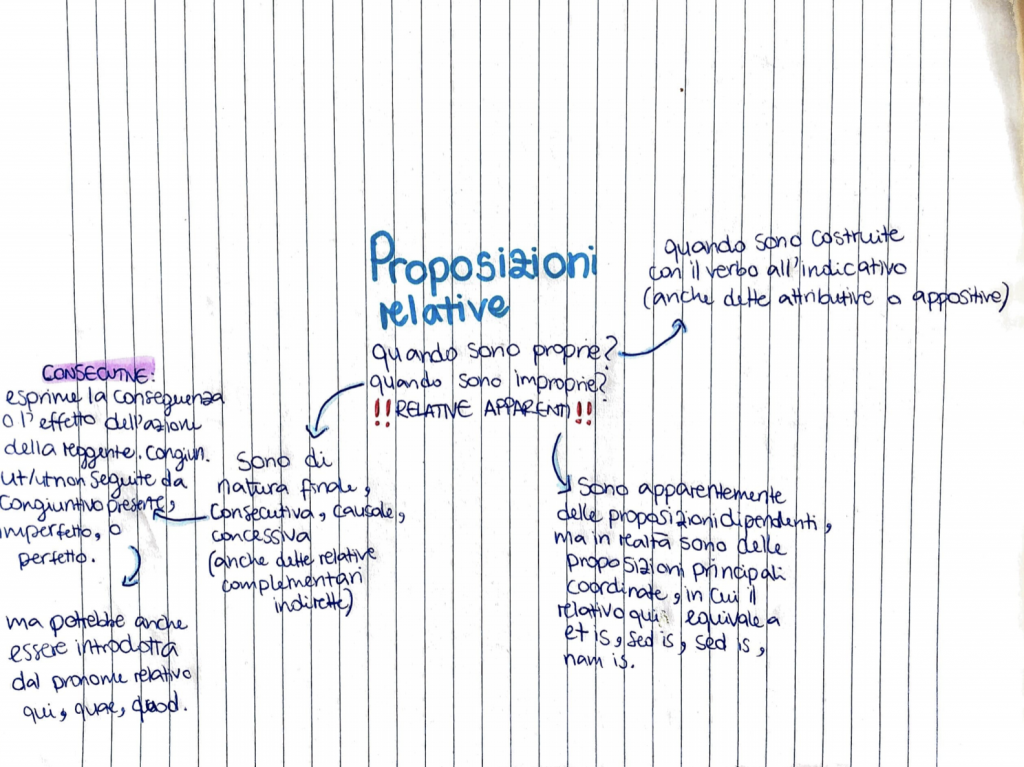 Proposizioni
relative
quando sono proprie?
quando sono improprie?
!!RELATIVE APPARENTI!!
quando sono costruite
con il verbo all'indicativo
(anche dette attributive o appositive)
CONSECUTIVE:
esprime la conseguenza
o l'effetto dell'azione
della reggente. Congiun.
ut/utnon seguite da
congiuntivo presente,
imperfetto, o
perfetto.
ma potrebbe anche
essere introdotta
dal pronome relativo
qui, quae, quod.
sono di
natura finale,
consecutiva, causale,
concessiva
(anche dette relative
complementari
indirette)
Sono apparentemente
delle proposizioni dipendenti,
ma in realtà sono delle
proposizioni principali
coordinate, in cui il
relativo qui equivale a
et is, sed is, sed is,
nam is.